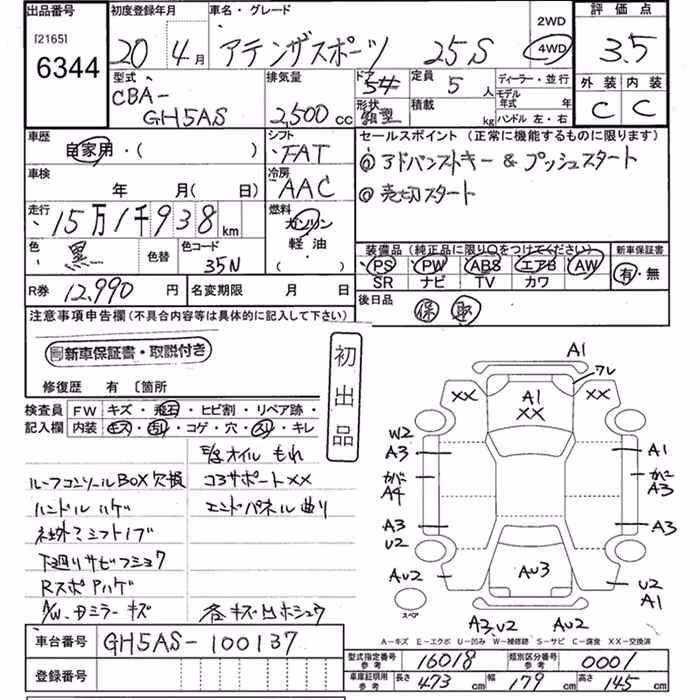 出品番号
[2165]
6344
初度登録年月
20年 4月
車名・グレード
アテンザスポーツ 25S
2WD
4WD
評価点
3.5
外装 内装
C C
型式
CBA-
GH5AS
排気量
2,500 cc
ドア
5
形状
箱型
定員
5人
積載
kg
ディーラー・並行
モデル年式 年
ハンドル 左・右
車歴
自家用・( )
シフト
FAT
セールスポイント(正常に機能するものに限ります)
アドバンストキー & プッシュスタート
車検
年 月( 日)
冷房
AAC
走行
15万1千938 km
燃料
ガソリン
軽油
( )
色
黒
色替
色コード
35N
装備品(純正品に限り○をつけてください)
PS PW ABS エアB AW
SR ナビ TV カワ
新車保証書
有・無
R券 12,990 円
名変期限 月 日
後日品
保 取
注意事項申告欄(不具合内容等は具体的に記入して下さい)
新車保証書・取説付き
初出品
修復歴 有 〔箇所
検査員記入欄
FW キズ・飛石・ヒビ割・リペア跡・
内装 キズ・汚れ・コゲ・穴・スリ・キレ
E/gオイルもれ
ルーフコンソールBOX欠損
コアサポートXX
ハンドルハゲ
エンドパネル曲り
社外シフトノブ
下廻りサビフショク
RスポAハゲ
A/W.ドミラーキズ
各キズ凹ホシュウ
A1
ワレ
XX
A1
XX
XX
W2
A3
A1
A4
A3
A3
U2
A3
AU2
AU3
U2
A1
スペア
A3,U2
AU2
A-キズ E-エクボ U-凹み W-補修跡 S-サビ C-腐食 XX-交換済
車台番号 GH5AS-100137
登録番号
型式指定番号 参考 16018
類別区分番号 参考 0001
車庫証明用 参考 長さ 473 cm 幅 179 cm 高さ 145 cm